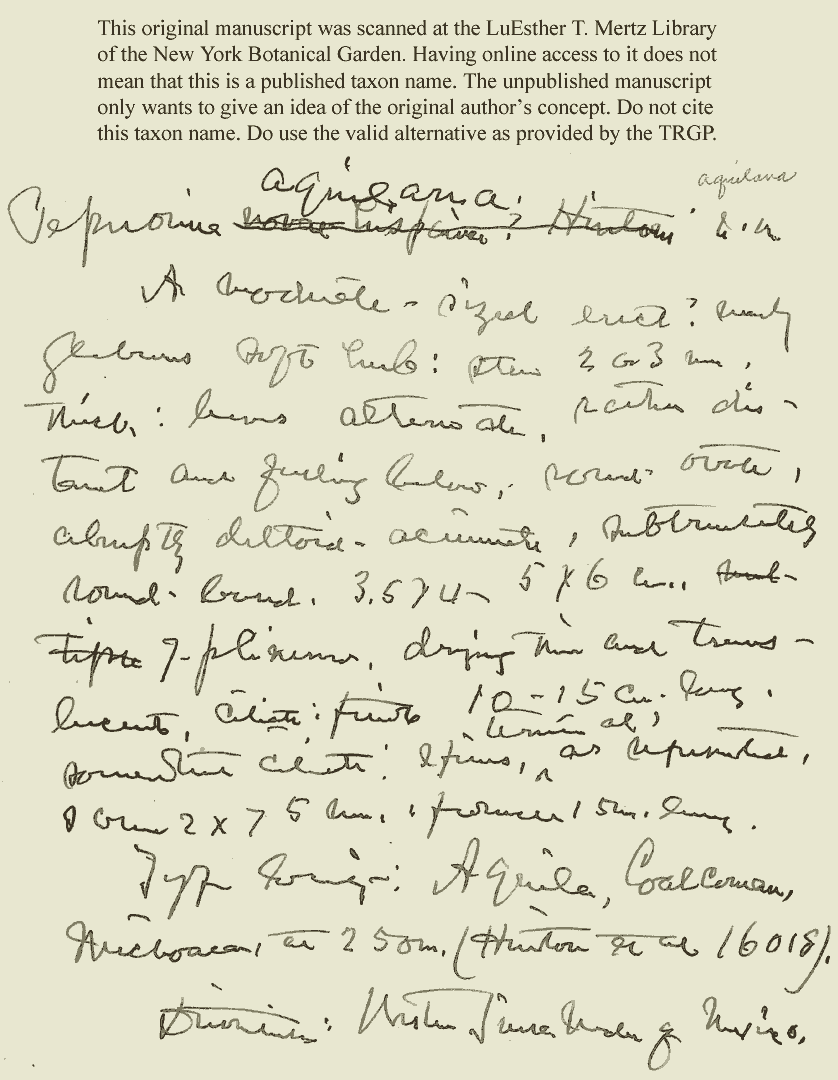 This original manuscript was scanned at the LuEsther T. Mertz Library
of the New York Botanical Garden. Having online access to it does not
mean that this is a published taxon name. The unpublished manuscript
only wants to give an idea of the original author's concept. Do not cite
this taxon name. Do use the valid alternative as provided by the TRGP.
aquilana aquilana
Peperomia Hintoni
A moderate-sized erect? nearly
glabrous soft herb: stem 2 or 3 mm.
thick: leaves alternate, rather dis-
tant and falling below, round-ovate,
abruptly deltoid-acuminate, subtruncately
round-based, 3.5 5 X 6 cm.,
7-plinerved, drying thin and trans-
lucent, ciliate: petiole 10-15 cm. long,
terminal
somewhat ciliate: spikes, as represented,
2 x 75 mm.: peduncle 15 mm. long.
Type locality: Aquila, Coalcoman,
Michoacan, at 250 m. (Hinton et al 16018).
Distribution: Western Tierra of Mexico.